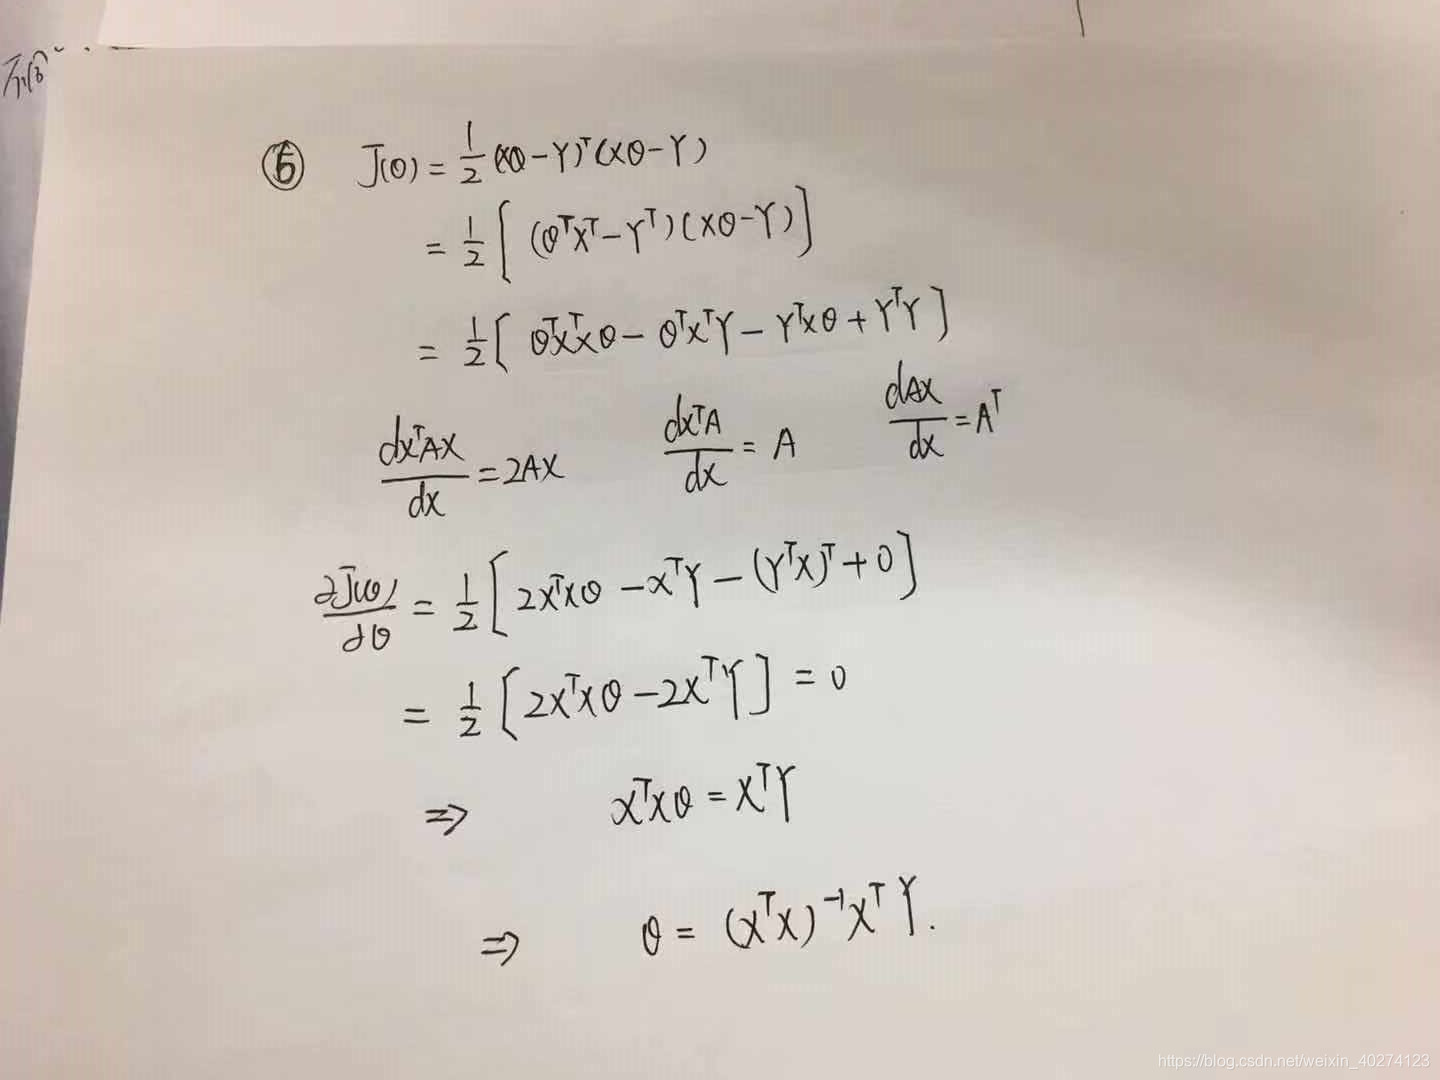 ⑤ J(θ) = 1/2 (Xθ-Y)ᵀ(Xθ-Y)
= 1/2 [ (θᵀXᵀ-Yᵀ)(Xθ-Y) ]
= 1/2 [ θᵀXᵀXθ - θᵀXᵀY - YᵀXθ + YᵀY ]
dXᵀAX/dX = 2AX dXᵀA/dX = A dAX/dX = Aᵀ
∂J(θ)/∂θ = 1/2 [ 2XᵀXθ - XᵀY - (YᵀX)ᵀ + 0 ]
= 1/2 [ 2XᵀXθ - 2XᵀY ] = 0
⇒ XᵀXθ = XᵀY
⇒ θ = (XᵀX)⁻¹XᵀY.
https://blog.csdn.net/weixin_40274123